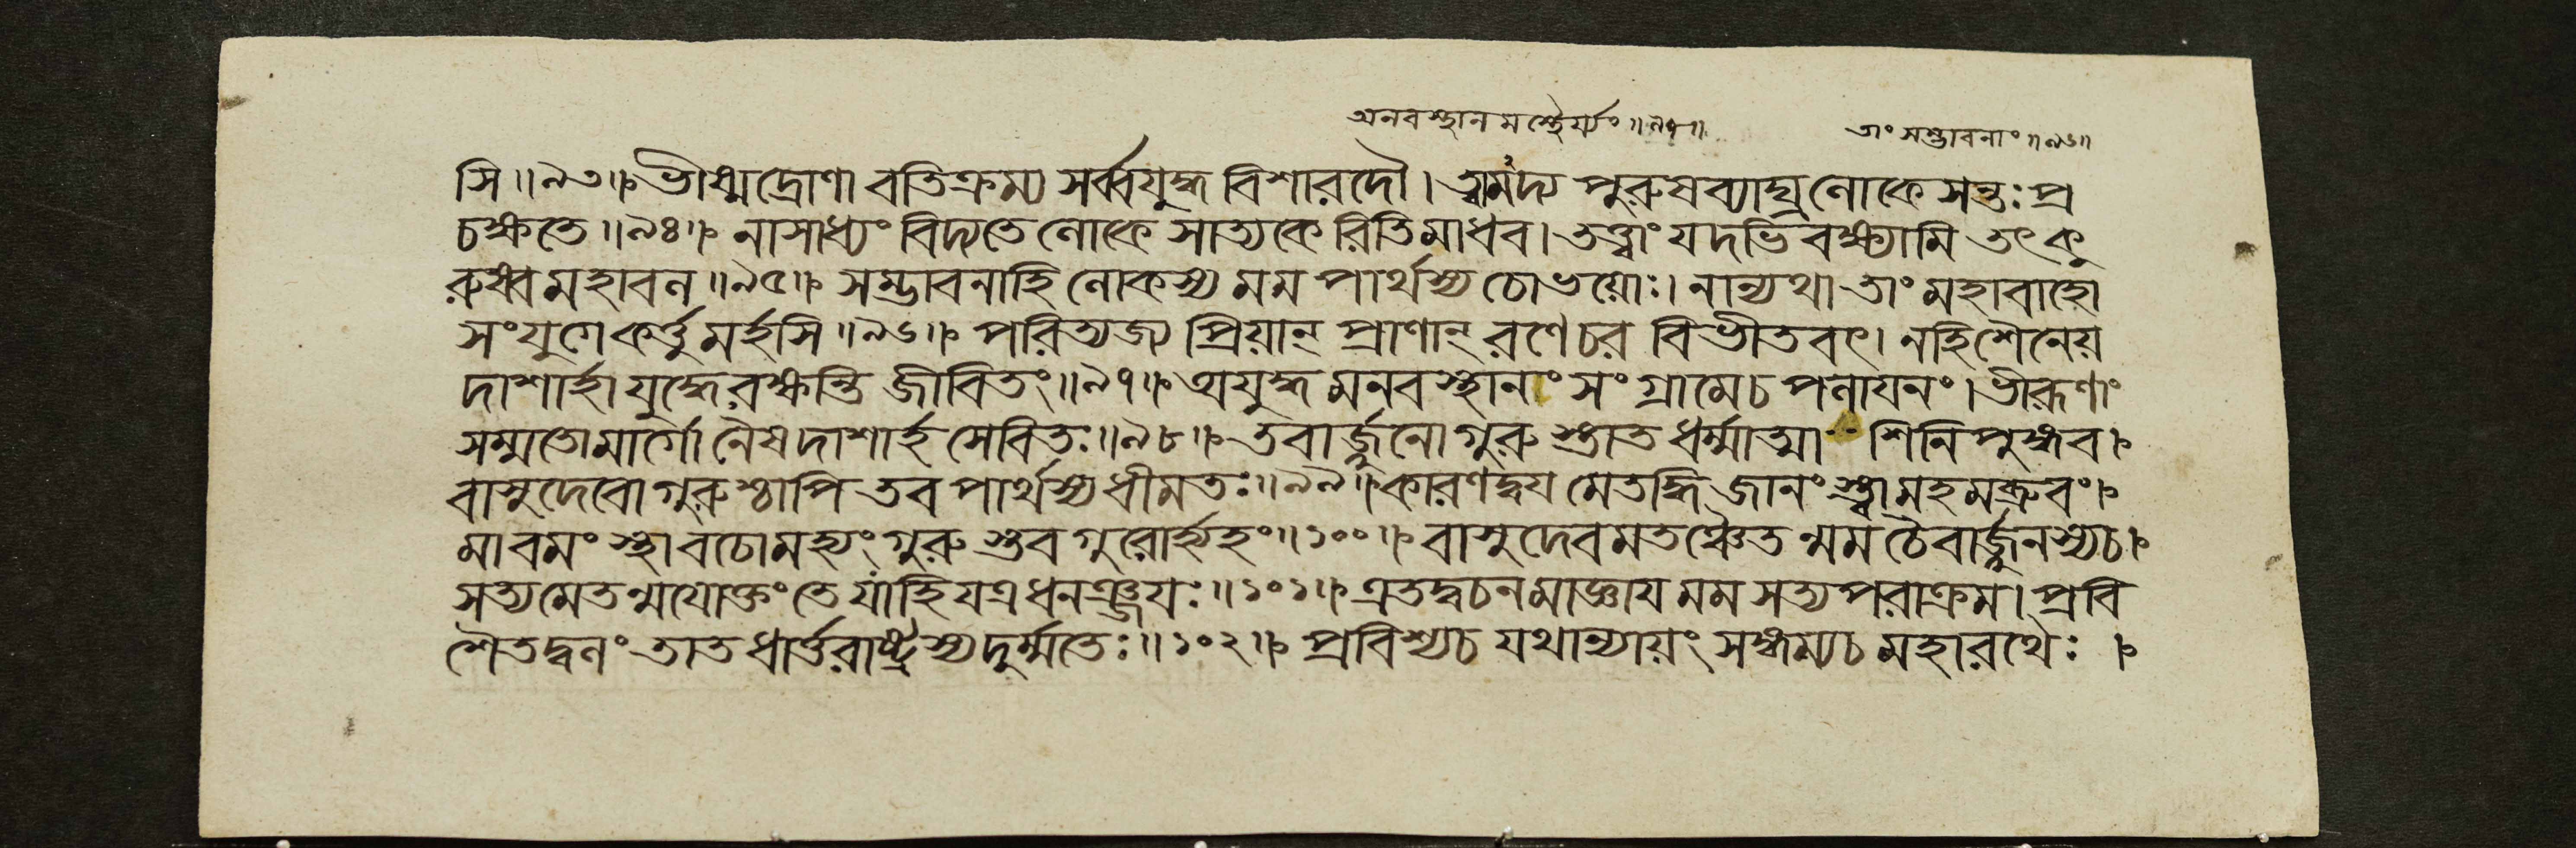 অনবস্থানমস্থৈর্য্যং॥৯৭॥ তাং সম্ভাবনাং॥৯৬॥
সি॥৯৩॥ ভীষ্মদ্রোণাবতিক্রম্য সর্ব্বযুদ্ধবিশারদৌ। ত্বামদ্য পুরুষব্যাঘ্র লোকে সন্তঃ প্র
চক্ষতে॥৯৪॥ নাসাধ্যং বিদ্যতে লোকে সাত্যকেরিতি মাধব। তত্ত্বাং যদভিবক্ষ্যামি তৎ কু
রুষ্ব মহাবল॥৯৫॥ সম্ভাবনাহি লোকস্য মম পার্থস্য চোভয়োঃ। নান্যথা তাং মহাবাহো
সংযুগে কর্ত্তুমর্হসি॥৯৬॥ পরিত্যজ্য প্রিয়ান্ প্রাণান্ রণে চর বিভীতবৎ। নহি শৈনেয়
দাশার্হা যুদ্ধে রক্ষন্তি জীবিতং॥৯৭॥ অযুদ্ধমনবস্থানাং সংগ্রামে চ পলায়নং। ভীরূণাং
সম্মতো মার্গো নৈষ দাশার্হসেবিতঃ॥৯৮॥ তবার্জ্জুনো গুরুস্তাত ধর্ম্মাত্মা শিনিপুঙ্গব।
বাসুদেবো গুরুশ্চাপি তব পার্থস্য ধীমতঃ॥৯৯॥ কারণদ্বয়মেতদ্ধি জানংস্ত্বামহমব্রুবং।
মাবমংস্থা বচো মহ্যং গুরুস্তব গুরোর্হ্যহং॥১০০॥ বাসুদেবমতঞ্চৈতন্মম চৈবার্জ্জুনস্য চ।
সত্যমেতন্ময়োক্তং তে যাহি যত্র ধনঞ্জয়ঃ॥১০১॥ এতদ্বচনমাজ্ঞায় মম সত্যপরাক্রম। প্রবি
শৈতদ্বলং তাত ধার্ত্তরাষ্ট্রস্য দুর্ম্মতেঃ॥১০২॥ প্রবিশ্য চ যথান্যায়ং সঙ্গম্য চ মহারথৈঃ।